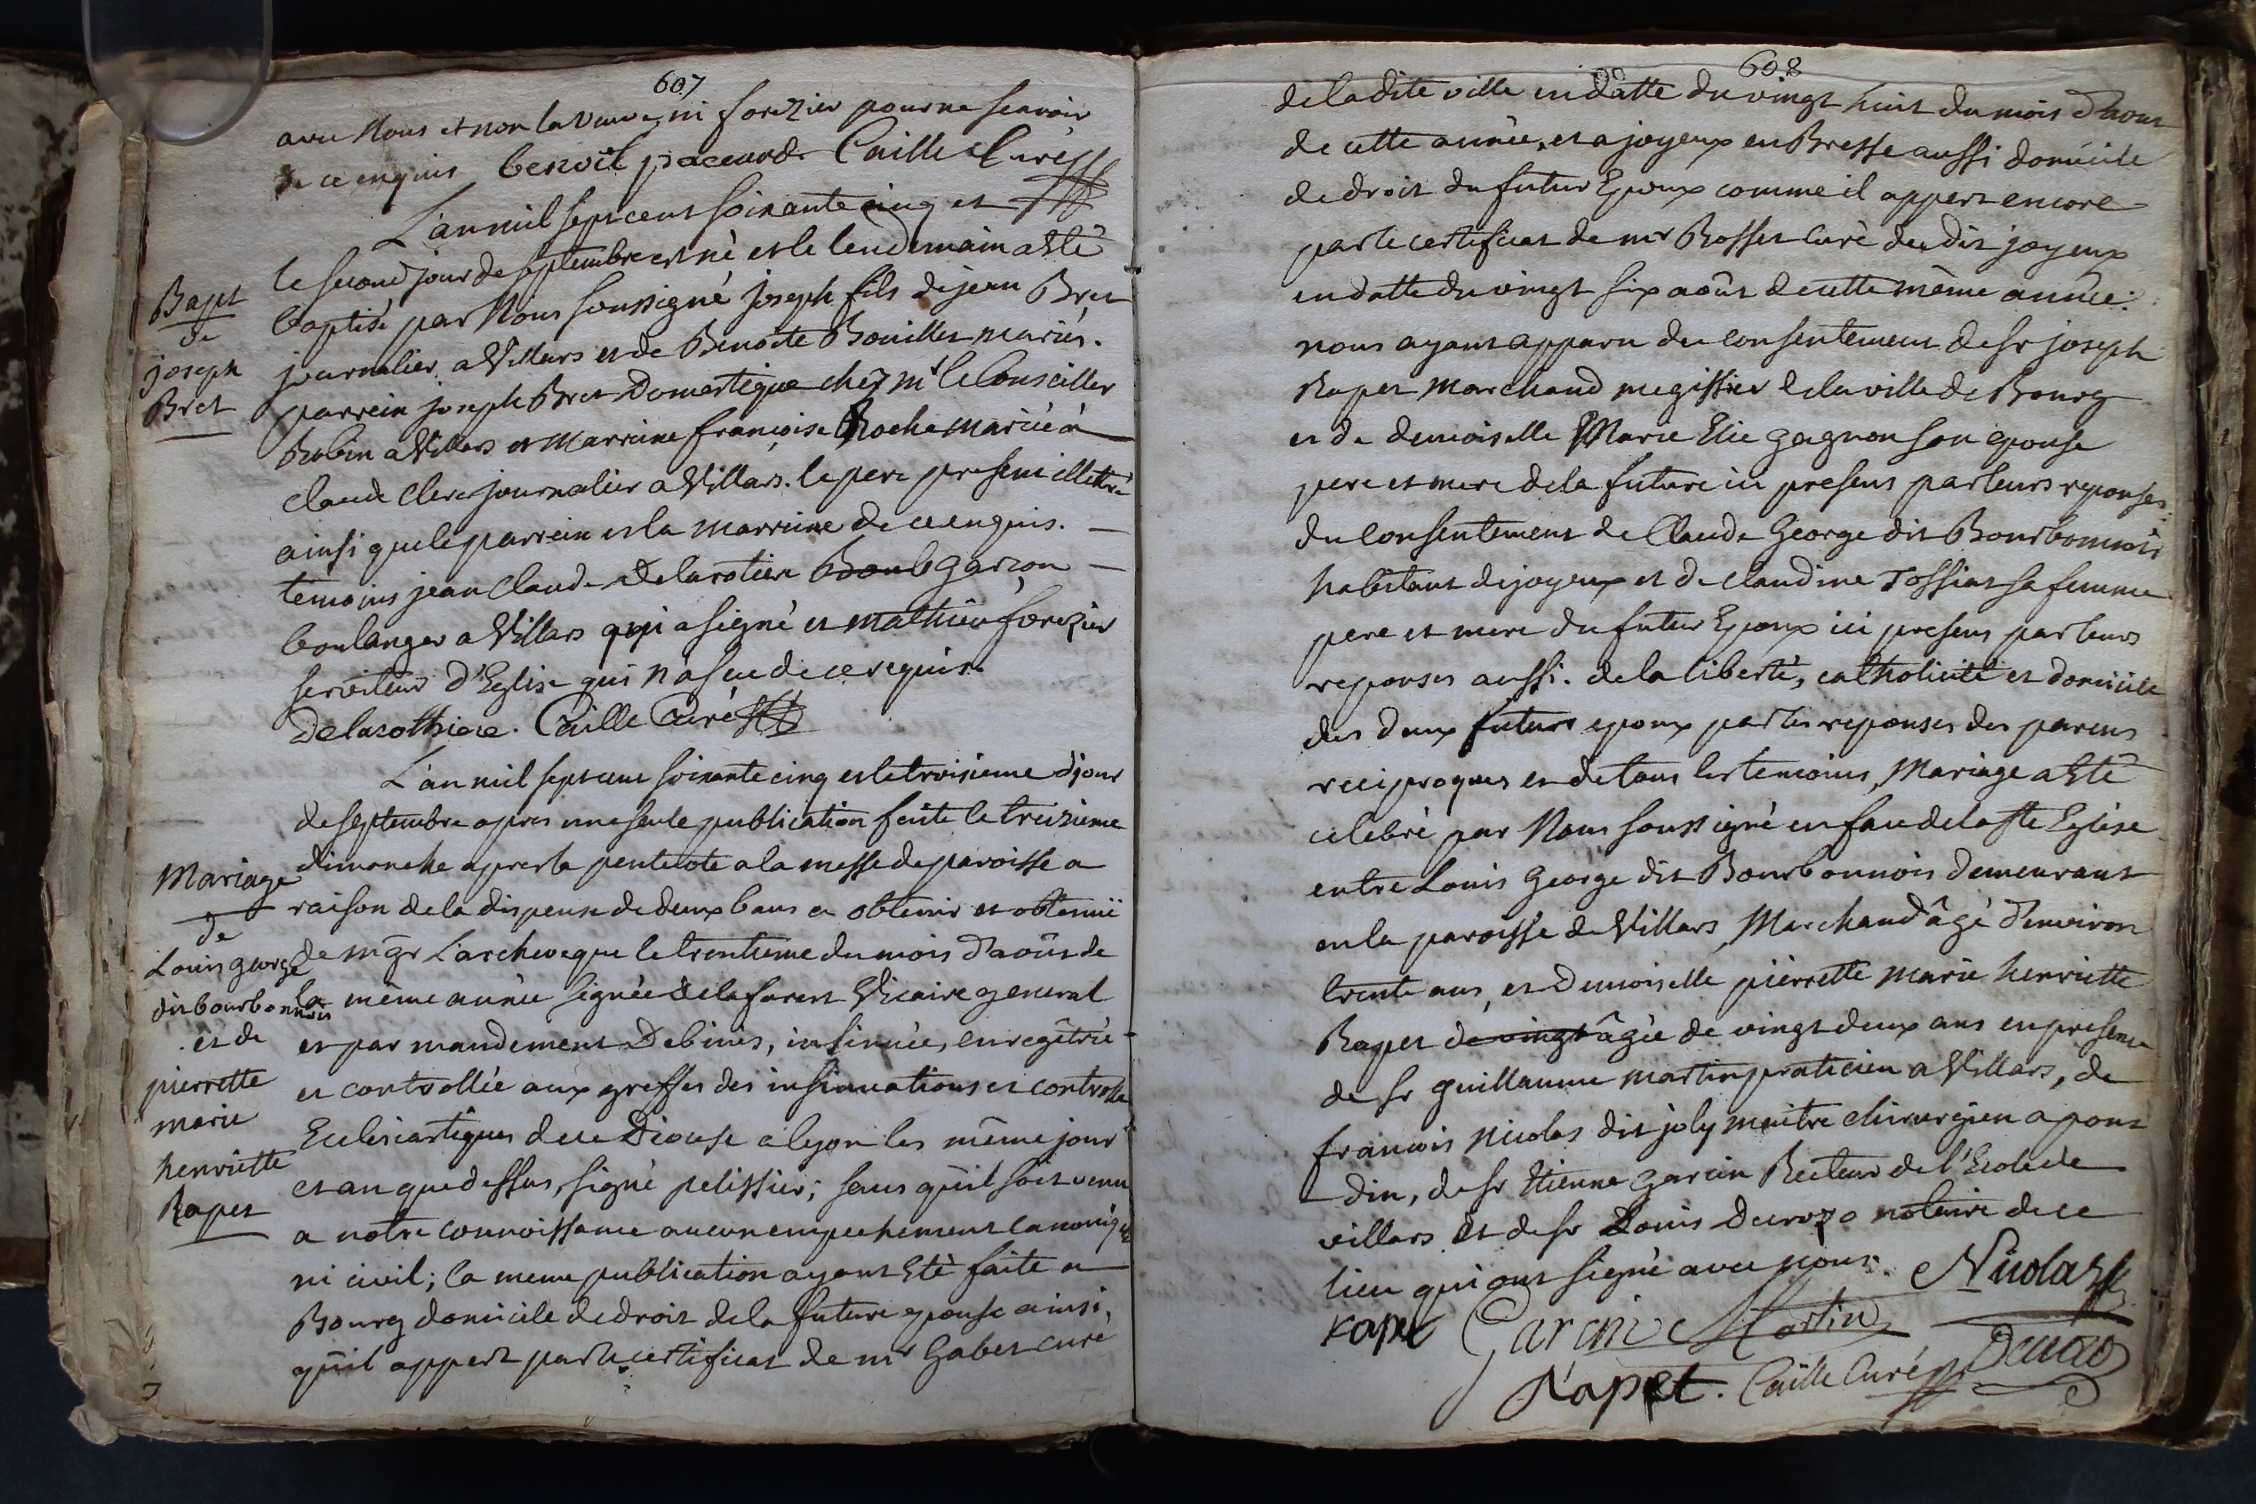 607
avec Nous et non la veuve, ni forezier pour ne scavoir
de ce enquis benoit paccard Caille Curé
L'an mil sept cent soixante cinq et
le second jour de septembre est né et le lendemain a Eté
baptisé par Nous soussigné joseph fils de jean Bret
journalier a Villars et de Benoite Bouillet mariés.
parrein joseph Bret Domestique chez mr le Conseiller
Robin a Villars et marraine françoise Roche mariée a
claude clerc journalier a Villars. le pere present illettré
ainsi que le parrein et la marreine de ce enquis.
temoins jean Claude Delarotiere garçon
boulanger a Villars qui a signé et mathieu forezier
serviteur d'Eglise qui n'a scu de ce requis.
Delarothiere. Caille Curé
Bapt
de
joseph
Bret
L'an mil sept cent soixante cinq et le troisieme jour
de septembre apres une seule publication faite le treizieme
dimanche apres la pentecote a la messe de paroisse a
raison de la dispense de deux bans a obtenir et obtenüe
de mgr L'archeveque le trentieme du mois d'août de
la même année signée Delaforest Vicaire general
et par mandement Debinis, insinuée, enregêtrée
et controllée aux greffes des insinuations et controlle
Eclesiastiques de ce Diocese a lyon les même jour
et an que dessus, signé pelissier; sans qu'il soit venu
a notre connoissance aucun empechement canonique
ni civil; la meme publication ayant Eté faite a
Bourg domicile de droit de la future epouse ainsi
qu'il appert par le certificat de mr Gabet curé
Mariage
de
Louis george
dit bourbonnois
et de
pierrette
marie
henriette
Rapet
608
de la dite ville en datte du vingt huit du mois d'aout
de cette année, et a joyeux en Bresse aussi domicile
de droit du futur Epoux comme il appert encore
par le certificat de mr Rosset Curé du dit joyeux
en datte du vingt six août de cette même année:
nous ayant apparu du consentement de sr joseph
Rapet marchand megissier de la ville de Bourg
et de demoiselle Marie Elie gagnon son epouse
pere et mere de la future ici presens par leurs reponses
du consentement de Claude George dit Bourbonnois
habitant de joyeux et de claudine Tossiat sa femme
pere et mere du futur Epoux ici presens par leurs
reponses aussi. de la liberté, catholicité et domicile
des deux futurs epoux par les reponses des parens
reciproques et de tous les temoins, Mariage a Eté
celebré par Nous soussigné en face de la ste Eglise
entre Louis George dit Bourbonnois demeurant
en la paroisse de Villars, Marchand âgé d'environ
trente ans, et Demoiselle pierrette marie henriette
Rapet de vingt âgée de vingt deux ans en presence
de sr guillaume martin praticien a Villars, de
francois nicolas dit joly maitre chirurgien a pont
din, de sr Etienne garcin Recteur de l'Ecole de
villars et de sr Louis Decrozo notaire de ce
lieu qui ont signé avec nous. Nicolas
rapet Garcin Martin
Rapet. Caille Curé Decrozo